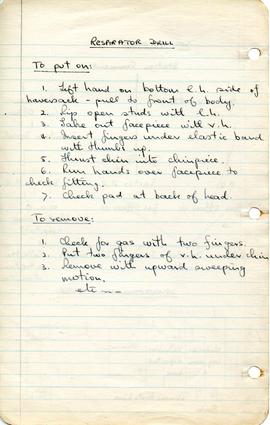 RESPIRATOR DRILL
To put on:
1. Left hand on bottom l.h. side of
haversack - pull to front of body.
2. Lip open studs with l.h.
3. Take out facepiece with r.h.
4. Insert fingers under elastic band
with thumbs up.
5. Thrust chin into chinpiece.
6. Run hands over facepiece to
check fitting.
7. Check pad at back of head.
To remove:
1. Check for gas with two fingers.
2. Put two fingers of r.h. under chin
3. Remove with upward sweeping
motion.
etc